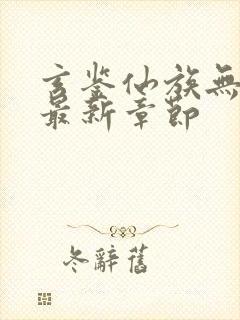 玄鉴仙族無
最新章節
冬辭舊